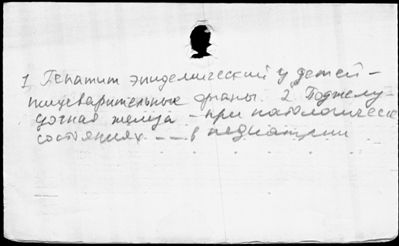 1. Гепатит эпидемический у детей -
пищеварительные органы. 2. Поджелу-
дочная железа - при патологическ
состояниях - - в педиатрии